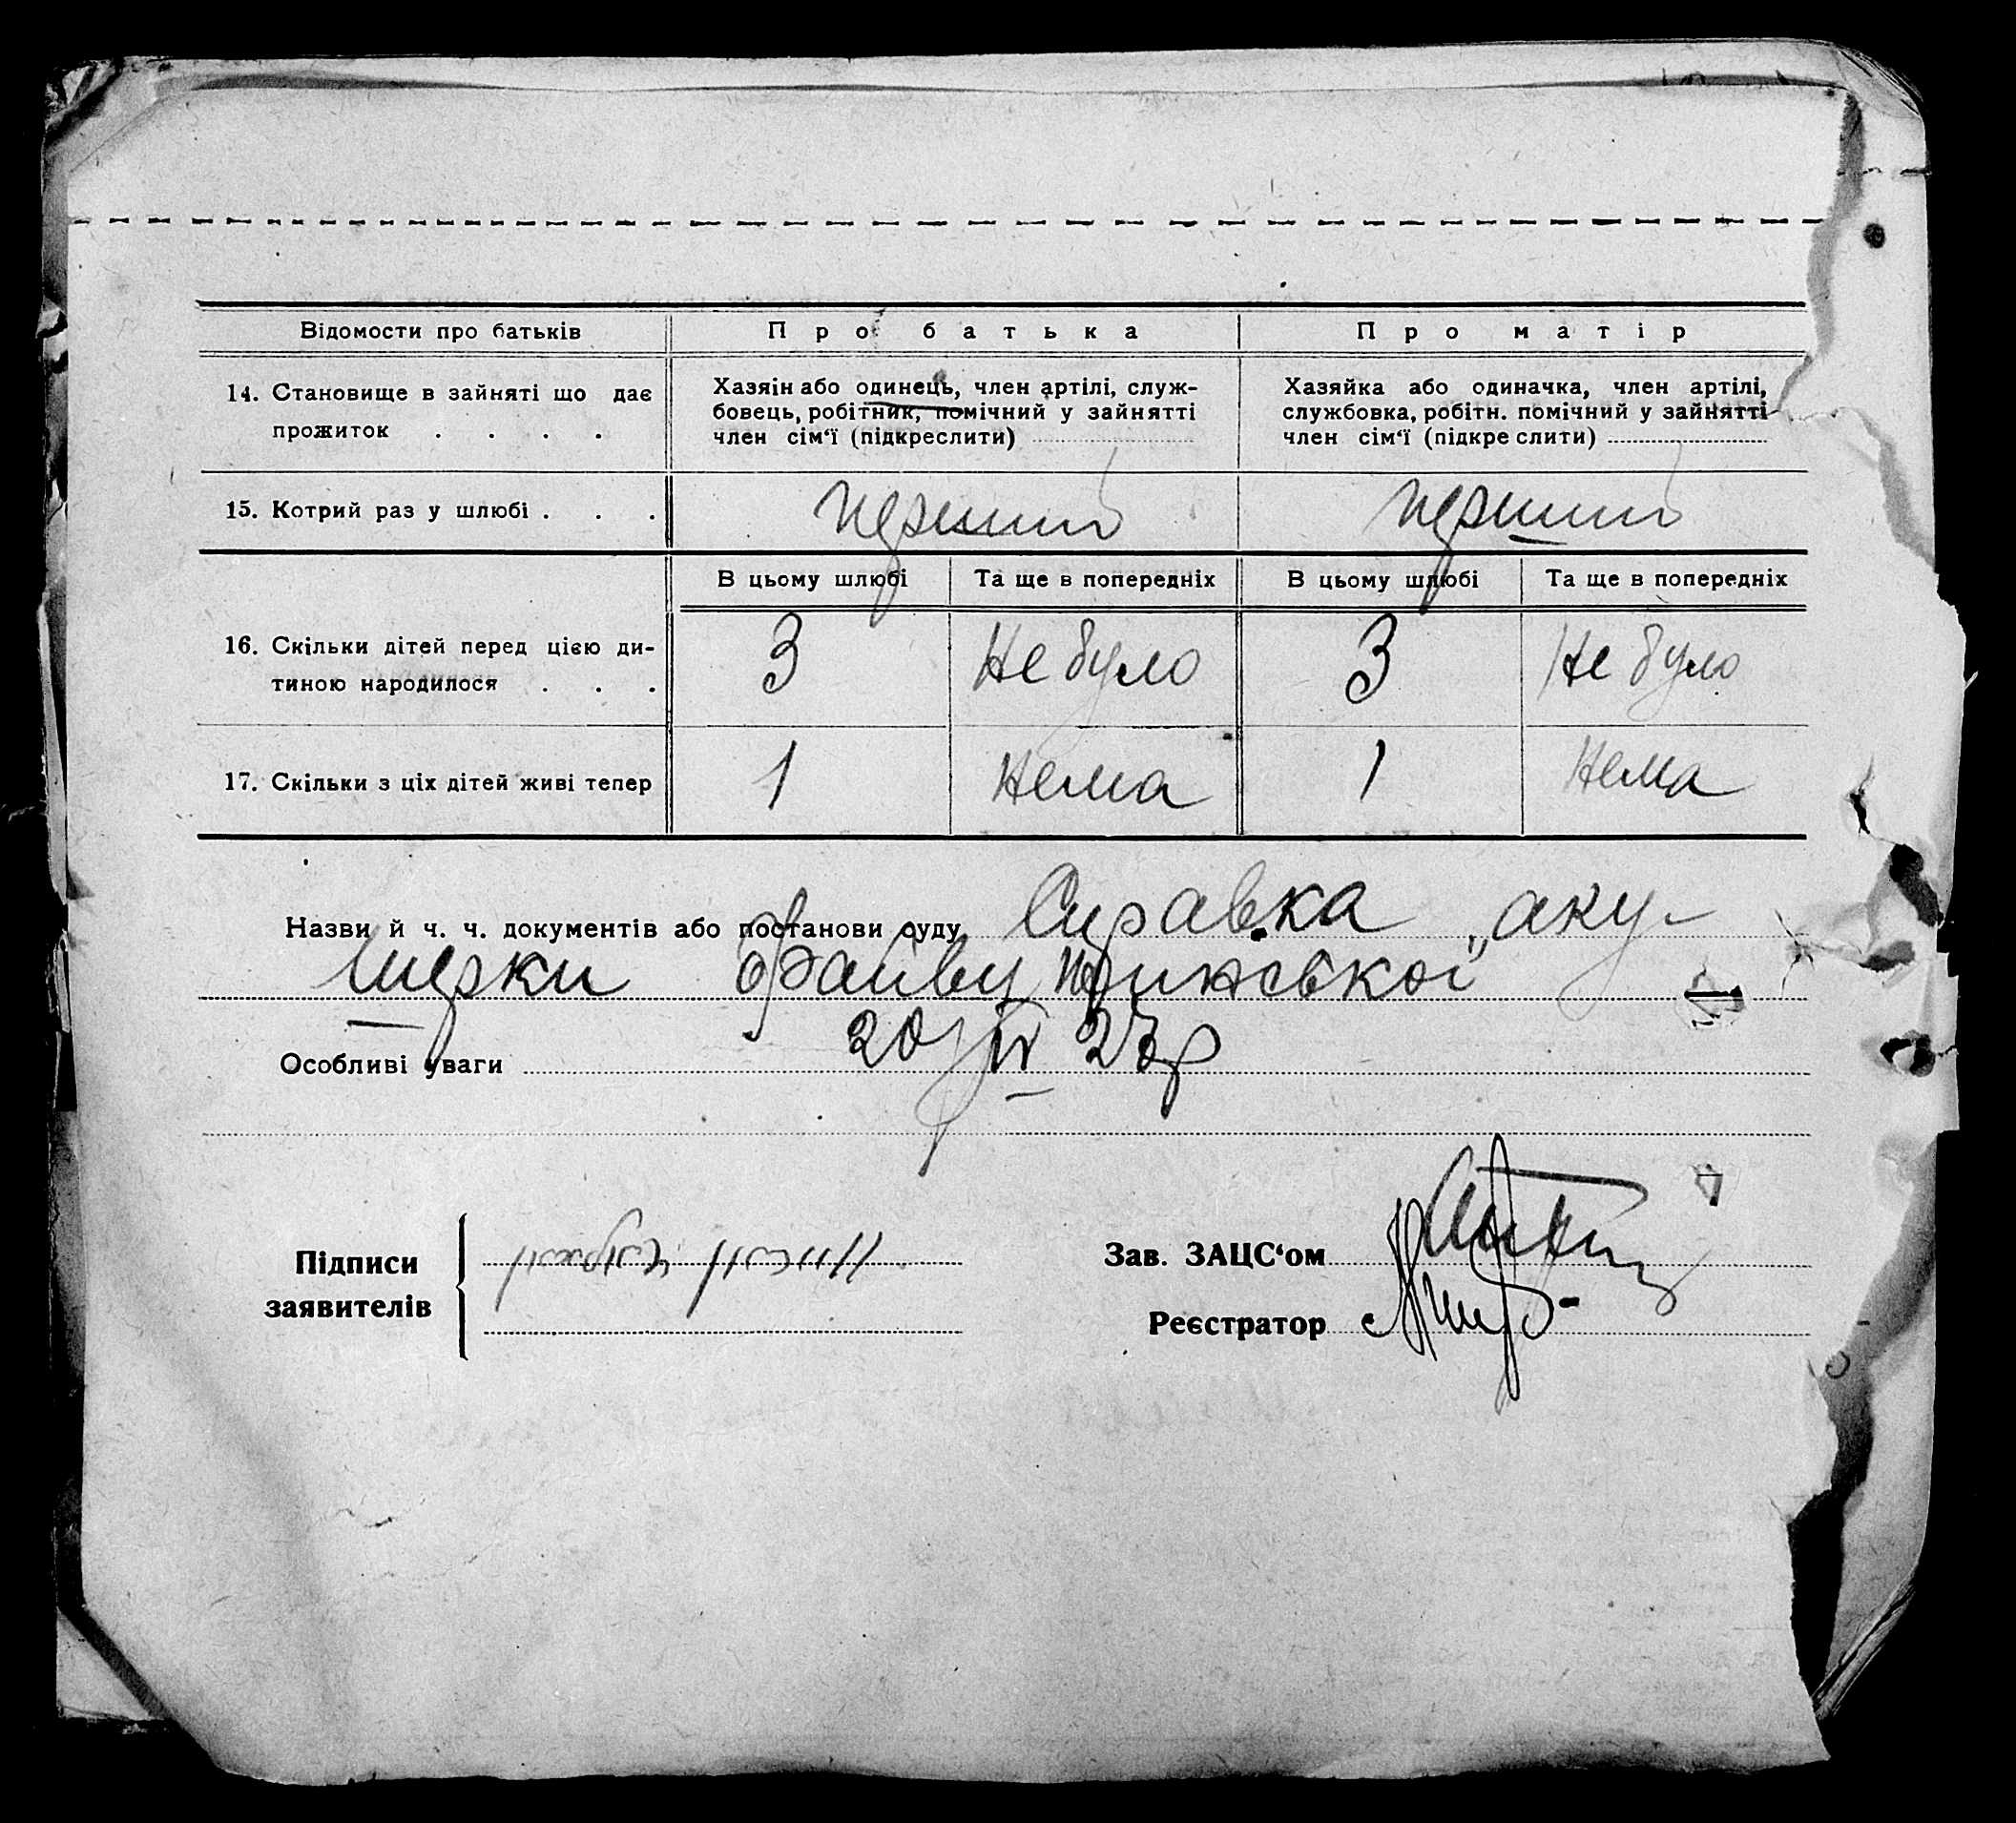 Відомости про батьків
Про батька
Про матір
14. Становище в зайняті що дає
прожиток . . . .
Хазяін або одинець, член артілі, служ-
бовець, робітник, помічний у зайнятті
член сім‘ї (підкреслити)
Хазяйка або одиначка, член артілі,
службовка, робітн. помічний у зайнятті
член сім‘ї (підкреслити)
15. Котрий раз у шлюбі . . .
перший
перший
В цьому шлюбі
Та ще в попередніх
В цьому шлюбі
Та ще в попередніх
16. Скільки дітей перед цією ди-
тиною народилося . . .
3
Не було
3
Не було
17. Скільки з ціх дітей живі тепер
1
Нема
1
Нема
Назви й ч. ч. документів або постанови суду Справка „аку-
шерки
20/IV 23р
Особливі уваги
Підписи
заявителів
Зав. ЗАЦС‘ом
Реєстратор